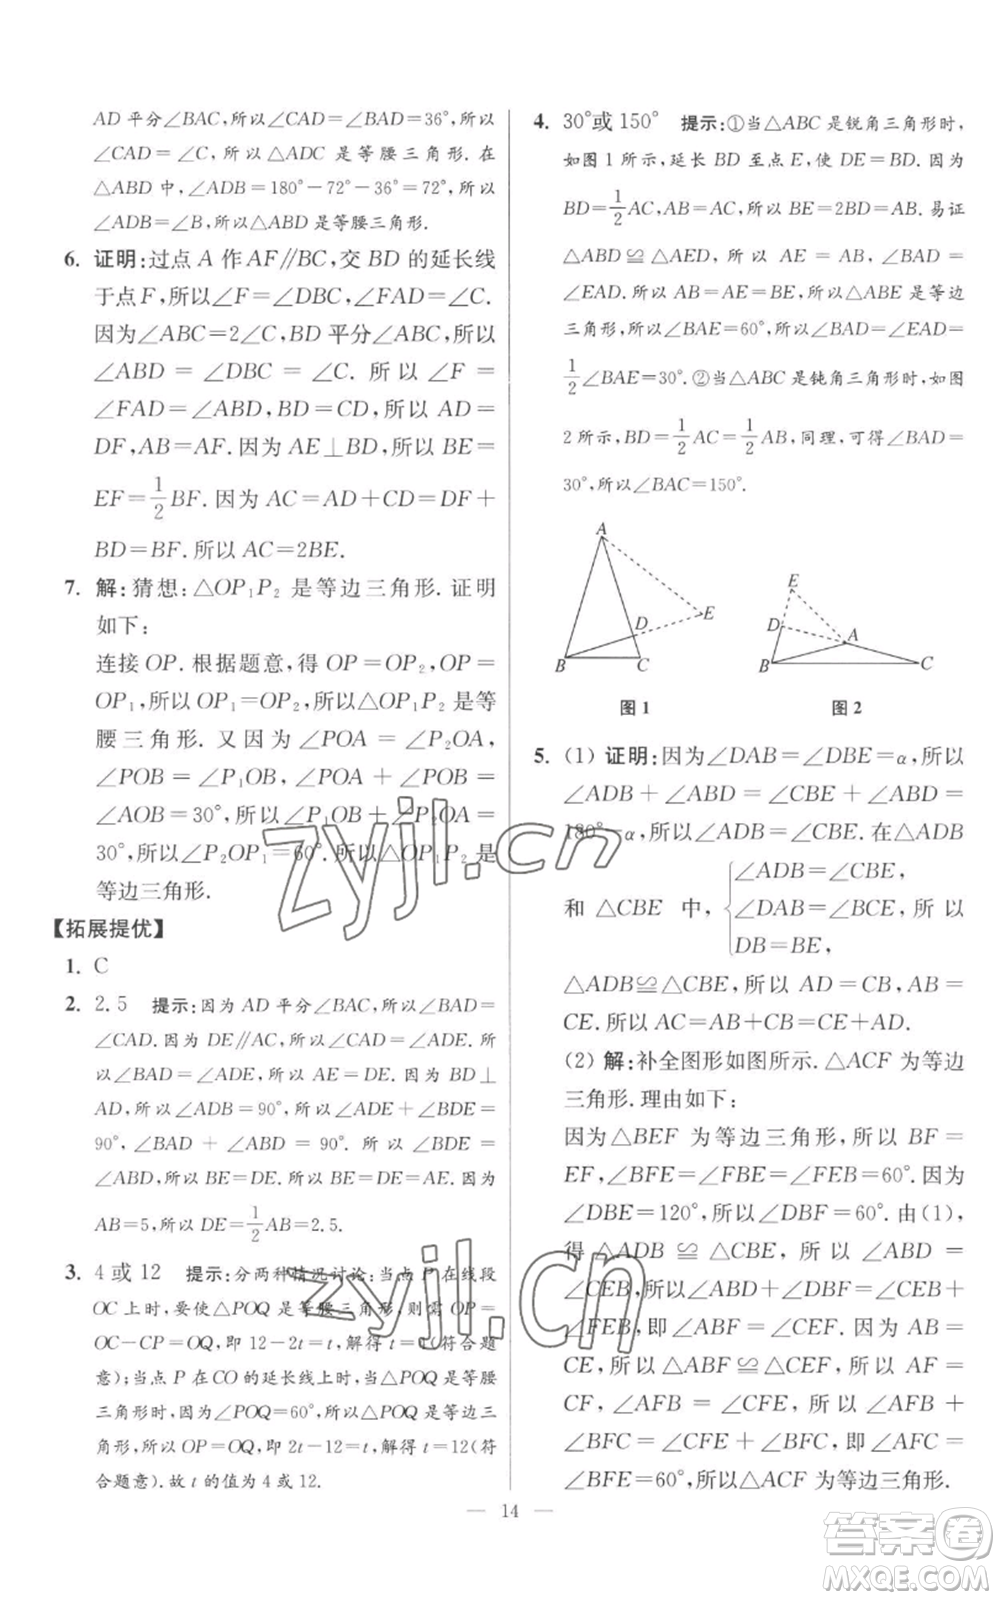 AD平分∠BAC,所以∠CAD=∠BAD=36°,所以
∠CAD=∠C,所以△ADC是等腰三角形.在
△ABD中,∠ADB=180°-72°-36°=72°,所以
∠ADB=∠B,所以△ABD是等腰三角形.
6. 证明:过点A作AF∥BC,交BD的延长线
于点F,所以∠F=∠DBC,∠FAD=∠C.
因为∠ABC=2∠C,BD平分∠ABC,所以
∠ABD=∠DBC=∠C.所以∠F=
∠FAD=∠ABD,BD=CD,所以AD=
DF,AB=AF.因为AE⊥BD,所以BE=
EF=1/2BF.因为AC=AD+CD=DF+
BD=BF.所以AC=2BE.
7. 解:猜想:△OP₁P₂是等边三角形.证明
如下:
连接OP.根据题意,得OP=OP₂,OP=
OP₁,所以OP₁=OP₂,所以△OP₁P₂是等
腰三角形.又因为∠POA=∠P₂OA,
∠POB=∠P₁OB,∠POA+∠POB=
∠AOB=30°,所以∠P₁OB+∠P₂OA=
30°,所以∠P₂OP₁=60°.所以△OP₁P₂是
等边三角形.
【拓展提优】
1. C
2. 2.5 提示:因为AD平分∠BAC,所以∠BAD=
∠CAD.因为DE∥AC,所以∠CAD=∠ADE.所
以∠BAD=∠ADE,所以AE=DE.因为BD⊥
AD,所以∠ADB=90°,所以∠ADE+∠BDE=
90°,∠BAD+∠ABD=90°.所以∠BDE=
∠ABD,所以BE=DE,所以BE=DE=AE.因为
AB=5,所以DE=1/2AB=2.5.
3. 4或12 提示:分两种情况讨论:当点P在线段
OC上时,要使△POQ是等腰三角形,则需OP=
OC-CP=OQ,即12-2t=t,解得t=4(符合题
意);当点P在CO的延长线上时,当△POQ是等腰
三角形时,因为∠POQ=60°,所以△POQ是等边三
角形,所以OP=OQ,即2t-12=t,解得t=12(符
合题意).故t的值为4或12.
4. 30°或150° 提示:①当△ABC是锐角三角形时,
如图1所示,延长BD至点E,使DE=BD.因为
BD=1/2AC,AB=AC,所以BE=2BD=AB.易证
△ABD≌△AED,所以AE=AB,∠BAD=
∠EAD.所以AB=AE=BE,所以△ABE是等边
三角形,所以∠BAE=60°,所以∠BAD=∠EAD=
1/2∠BAE=30°.②当△ABC是钝角三角形时,如图
2所示,BD=1/2AC=1/2AB,同理,可得∠BAD=
30°,所以∠BAC=150°.
A
D
E
B
C
图1
E
D
A
B
C
图2
5. (1) 证明:因为∠DAB=∠DBE=α,所以
∠ADB+∠ABD=∠CBE+∠ABD=
180°-α,所以∠ADB=∠CBE.在△ADB
和△CBE中,{∠ADB=∠CBE, ∠DAB=∠BCE, DB=BE, 所以
△ADB≌△CBE,所以AD=CB,AB=
CE.所以AC=AB+CB=CE+AD.
(2) 解:补全图形如图所示.△ACF为等边
三角形.理由如下:
因为△BEF为等边三角形,所以BF=
EF,∠BFE=∠FBE=∠FEB=60°.因为
∠DBE=120°,所以∠DBF=60°.由(1),
得△ADB≌△CBE,所以∠ABD=
∠CEB,所以∠ABD+∠DBF=∠CEB+
∠FEB,即∠ABF=∠CEF.因为AB=
CE,所以△ABF≌△CEF,所以AF=
CF,∠AFB=∠CFE,所以∠AFB+
∠BFC=∠CFE+∠BFC,即∠AFC=
∠BFE=60°,所以△ACF为等边三角形.
— 14 —
zyjl.cn
zyjl.cn
答案圈
MXQE.COM